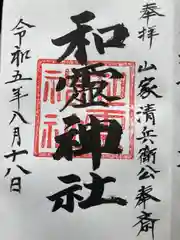 奉拝
山家清兵衛公奉斎
和霊神社
令和五年八月十八日